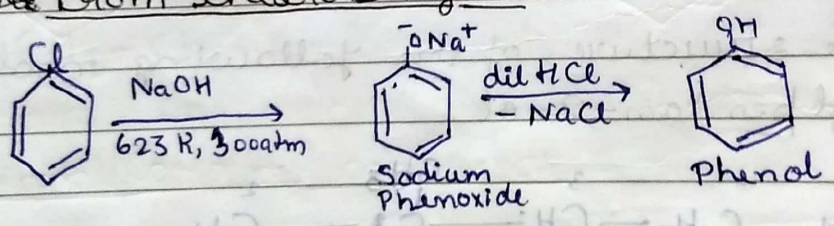 Cl
NaOH
623 K, 300atm
⁻ONa⁺
Sodium
Phenoxide
dil HCl
- NaCl
OH
Phenol